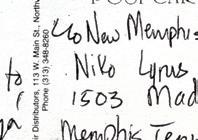 POST CAR
ir Distributors, 113 W. Main St., North
Phone (313) 348-8260
to
c/o New Memphis
Niko Lyrus
1503 Mad
Memphis Tenn